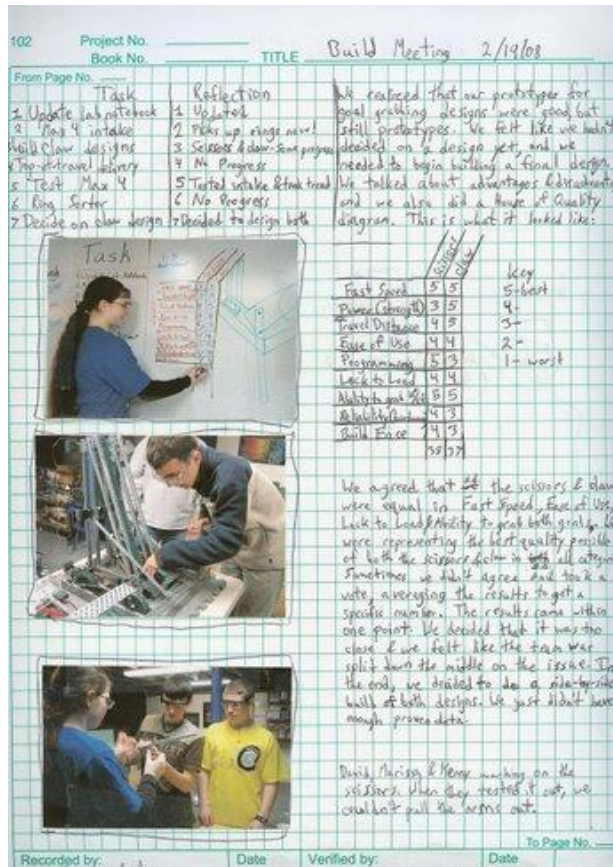 102 Project No.
Book No. TITLE Build Meeting 2/19/08
From Page No.
Task
1 Update lab notebook
2 Max 4 intake
3 Build claw designs
4 Top-of-travel delivery
5 Test Max 4
6 Ring Sorter
7 Decide on claw design
Reflection
1 Updated
2 Picks up rings now!
3 Scissors & claw-some progress
4 No Progress
5 Tested intake & tank tread
6 No Progress
7 Decided to design both
We realized that our prototypes for
goal grabbing designs were good, but
still prototypes. We felt like we hadn't
decided on a design yet, and we
needed to begin building a final design.
We talked about advantages & disadvantages
and we also did a House of Quality
diagram. This is what it looked like:
Scissor Claw
Fast Speed 5 5
Power (strength) 3 5
Travel Distance 4 5
Ease of Use 4 4
Programming 5 3
Lack to Load 4 4
Ability to grab 5 5
Reliability 4 3
Build Ease 4 3
38 37
key
5-best
4-
3-
2-
1- worst
Task
We agreed that the scissors & claw
were equal in Fast Speed, Ease of Use,
Lack to Load & Ability to grab both goals.
were representing the best quality possible
of both the scissors & claw in all categories
Sometimes we didn't agree and took a
vote, averaging the results to get a
specific number. The results came within
one point. We decided that it was too
close & we felt like the team was
split down the middle on the issue. In
the end, we decided to do a side-by-side
build of both designs. We just didn't have
enough proven data.
David, Marissa & Kenny working on the
scissors. When they tested it out, we
couldn't pull the arms out.
To Page No.
Recorded by: Date Verified by: Date